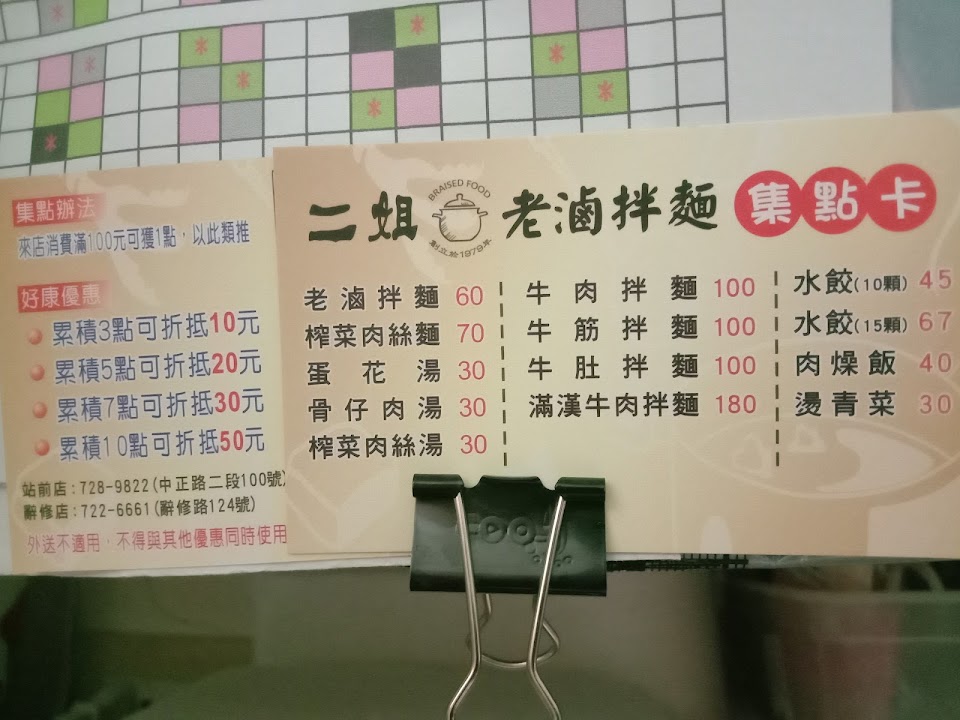 集點辦法
來店消費滿100元可獲1點，以此類推
好康優惠
累積3點可折抵10元
累積5點可折抵20元
累積7點可折抵30元
累積10點可折抵50元
站前店：728-9822(中正路二段100號)
辭修店：722-6661(辭修路124號)
外送不適用，不得與其他優惠同時使用
二姐 老滷拌麵 集點卡
BRAISED FOOD
創立於1979年
老滷拌麵 60
榨菜肉絲麵 70
蛋花湯 30
骨仔肉湯 30
榨菜肉絲湯 30
牛肉拌麵 100
牛筋拌麵 100
牛肚拌麵 100
滿漢牛肉拌麵 180
水餃(10顆) 45
水餃(15顆) 67
肉燥飯 40
燙青菜 30